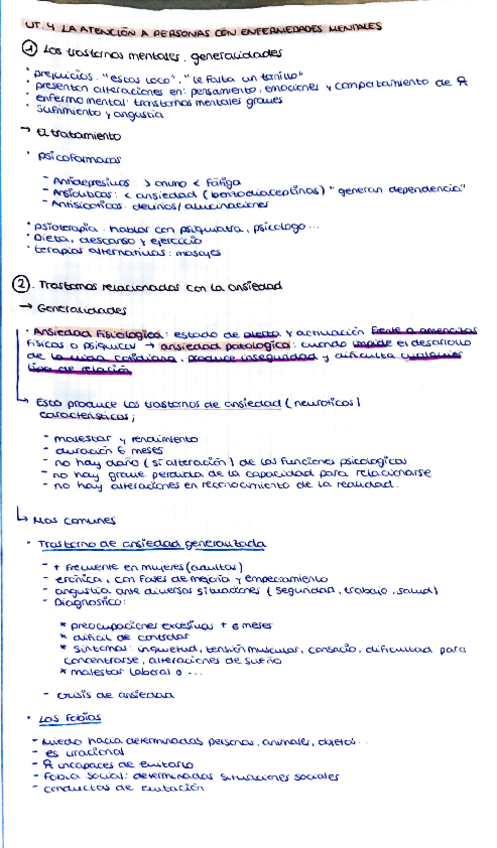 UT. 4 LA ATENCIÓN A PERSONAS CON ENFERMEDADES MENTALES
① Los trastornos mentales. generalidades
· prejuicios: "estas loco", "le falta un tornillo"
· presentan alteraciones en: pensamiento, emociones y comportamiento de
· enfermo mental: transtornos mentales graves
· Sufrimiento y angustia
→ El tratamiento
· psicofarmacos
- Antidepresivos: > animo < fatiga
- Ansioliticos: < ansiedad (benzodiacepinas) "generan dependencia"
- Antisicoticos: delirios/alucinaciones
· psioterapia: hablar con psiquiatra, psicologo...
· Dieta, descanso y ejercicio
· terapias alternativas: masajes
② . Trastornos relacionados con la ansiedad
→ Generalidades
· Ansiedad fisiologica: estado de alerta y activación frente a amenazas
fisicas o psiquicas → ansiedad patologica: cuando impide el desarrollo
de la vida cotidiana, produce inseguridad y dificulta cualquier
tipo de relación
↳ Esto produce los trastornos de ansiedad (neuroticos)
caracteristicas;
- malestar y rendimiento
- duración 6 meses
- no hay daño (si alteración) de las funciones psicologicas
- no hay grave perdida de la capacidad para relacionarse
- no hay alteraciones en reconocimiento de la realidad.
↳ Mas comunes
· Trastorno de ansiedad generalizada
- + frecuente en mujeres (adultas)
- crónica, con fases de mejoria y empeoramiento
- angustia ante diversas situaciones (seguridad, trabajo, salud)
- Diagnostico:
* preocupaciones excesivas + 6 meses
* dificil de controlar
* sintomas: inquietud, tensión muscular, cansacio, dificultad para
concentrarse, alteraciones de sueño
* malestar laboral o ...
- crisis de ansiedad
· Las fobias
- Miedo hacia determinadas personas, animales, objetos...
- es irracional
- incapaces de evitarlo
- Fobia social: determinadas situaciones sociales
- conductas de evitación